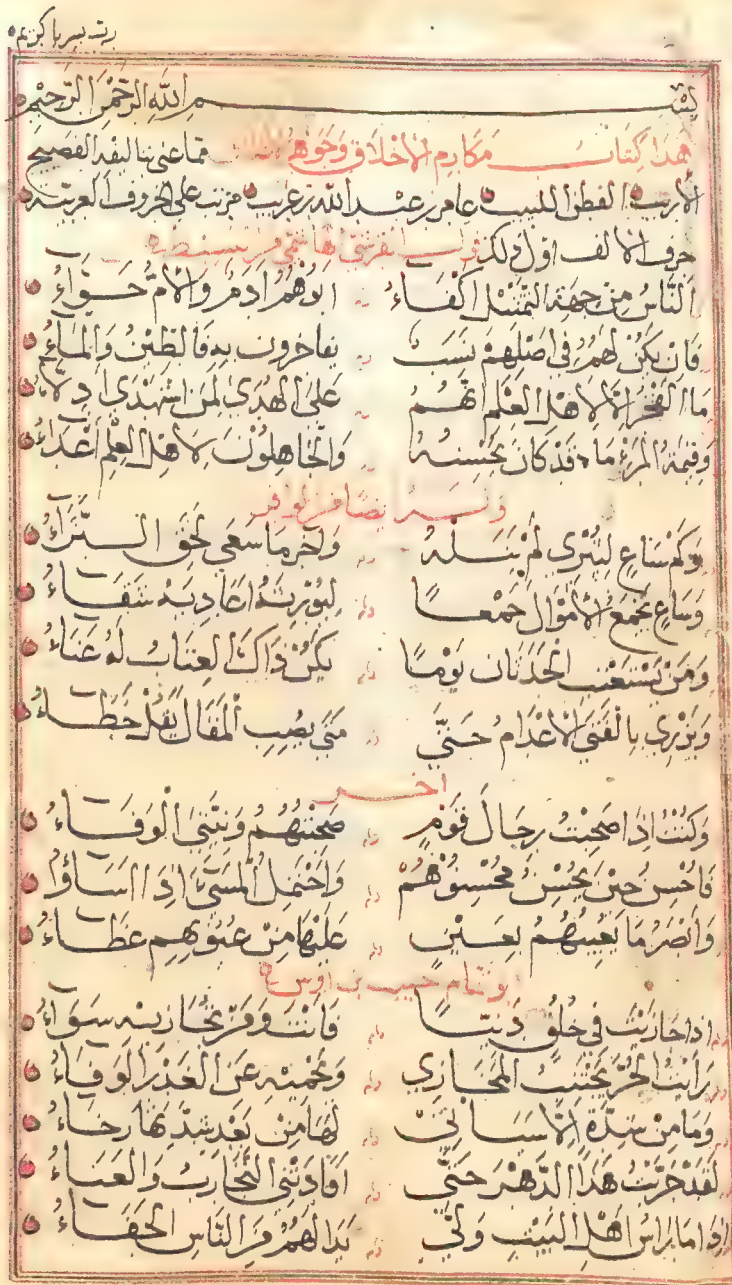 رب يسر يا كريم
بسم الله الرحمن الرحيم
هذا كتاب مكارم الاخلاق وجوهر مما عنى بتاليفه الفصيح
الأريب الفطن اللبيب عامر بن عبد الله بن غريب مرتب على الحروف العربية
حرف الالف اول ذلك
اَلنَّاسُ مِنْ جِهَةِ التِّمْثَالِ اَكْفَاءُ ابُوهُمُ ادَمُ وَالأمُّ حَوَّاءُ
فَانْ يَكُنْ لَهُمُ فِى اصْلِهِمْ نَسَبٌ يفاخرون بِهِ فَالطِّينُ وَالمَاءُ
مَا الْفَخْرُ الاَّ لاِهْلِ العِلْمِ انَّهُمُ عَلَى الهُدَىٰ لِمَنِ اسْتَهْدَىٰ ادِلاَّءُ
وَقِيمَةُ المَرْءِ مَا قَدْ كَانَ يُحْسِنُهُ وَالجَاهِلُوْنَ لاِهْلِ العِلْمِ اعْدَاءُ
وله ايضا من الوافر
وَكَمْ سَاعٍ لِيُثْرِى لَمْ يَنَلْهُ وَاخر مَا سَعَى لَحِقَ الثَّرَاءُ
وَسَاعٍ يَجْمَعُ الأَمْوَالَ جَمْعًا لِيُورِثَهُ اعَادِيَهُ شَقَاءُ
وَمَنْ يَسْتَعْتِبِ الْحَدَثَانَ يَوْمًا يَكُنْ ذَاكَ العِتَابُ لَهُ عَنَاءُ
وَيُزْرِى بِالْفَتَى الاِعْدَامُ حَتَّى مَتَى يُصِبِ الْمَقَالَ يُقَلْ خَطَاءُ
اخر
وَكُنْتُ اِذَا صَحِبْتُ رِجَالَ قَوْمٍ صَحِبْتُهُمُ وَنِيَّتِىَ الْوَفَاءُ
فَاُحْسِنُ حِيْنَ يُحْسِنُ مُحْسِنُوْهُمْ وَاحْتَمِلُ الْمُسِىَٔ اِذَا اسَاؤُا
وَاُبْصِرُ مَا يَعِيبُهُمُ بِعَيْنٍ عَلَيْهَا مِنْ عُيُوبِهِمِ غِطَاءُ
ابو تمام حبيب بن اوس
اذا جَارَيْتَ فِى خُلُقٍ دَنِيًّا فَانْتَ وَمَنْ تُجَارِيْهِ سَوَاءُ
رَاَيْتُ الحُرَّ يَجْتَنِبُ الْمَخَازِي وَيَحْمِيْهِ عَنِ الْغَدْرِ الوَفَاءُ
وَمَا مِنْ شِدَّةٍ اِلاَّ سَيَاتِىْ لَهَا مِنْ بَعْدِ شِدَّتِهَا رَخَاءُ
لَقَدْ جَرَّبْتُ هَذَا الدَّهْرَ حَتَّى اَفَادَتْنِى التَّجَارِبُ وَالعَنَاءُ
اِذَا مَا رَاْسُ اَهْلِ البَيْتِ وَلَّى بَدَا لَهُمُ مِنَ النَّاسِ الجَفَاءُ